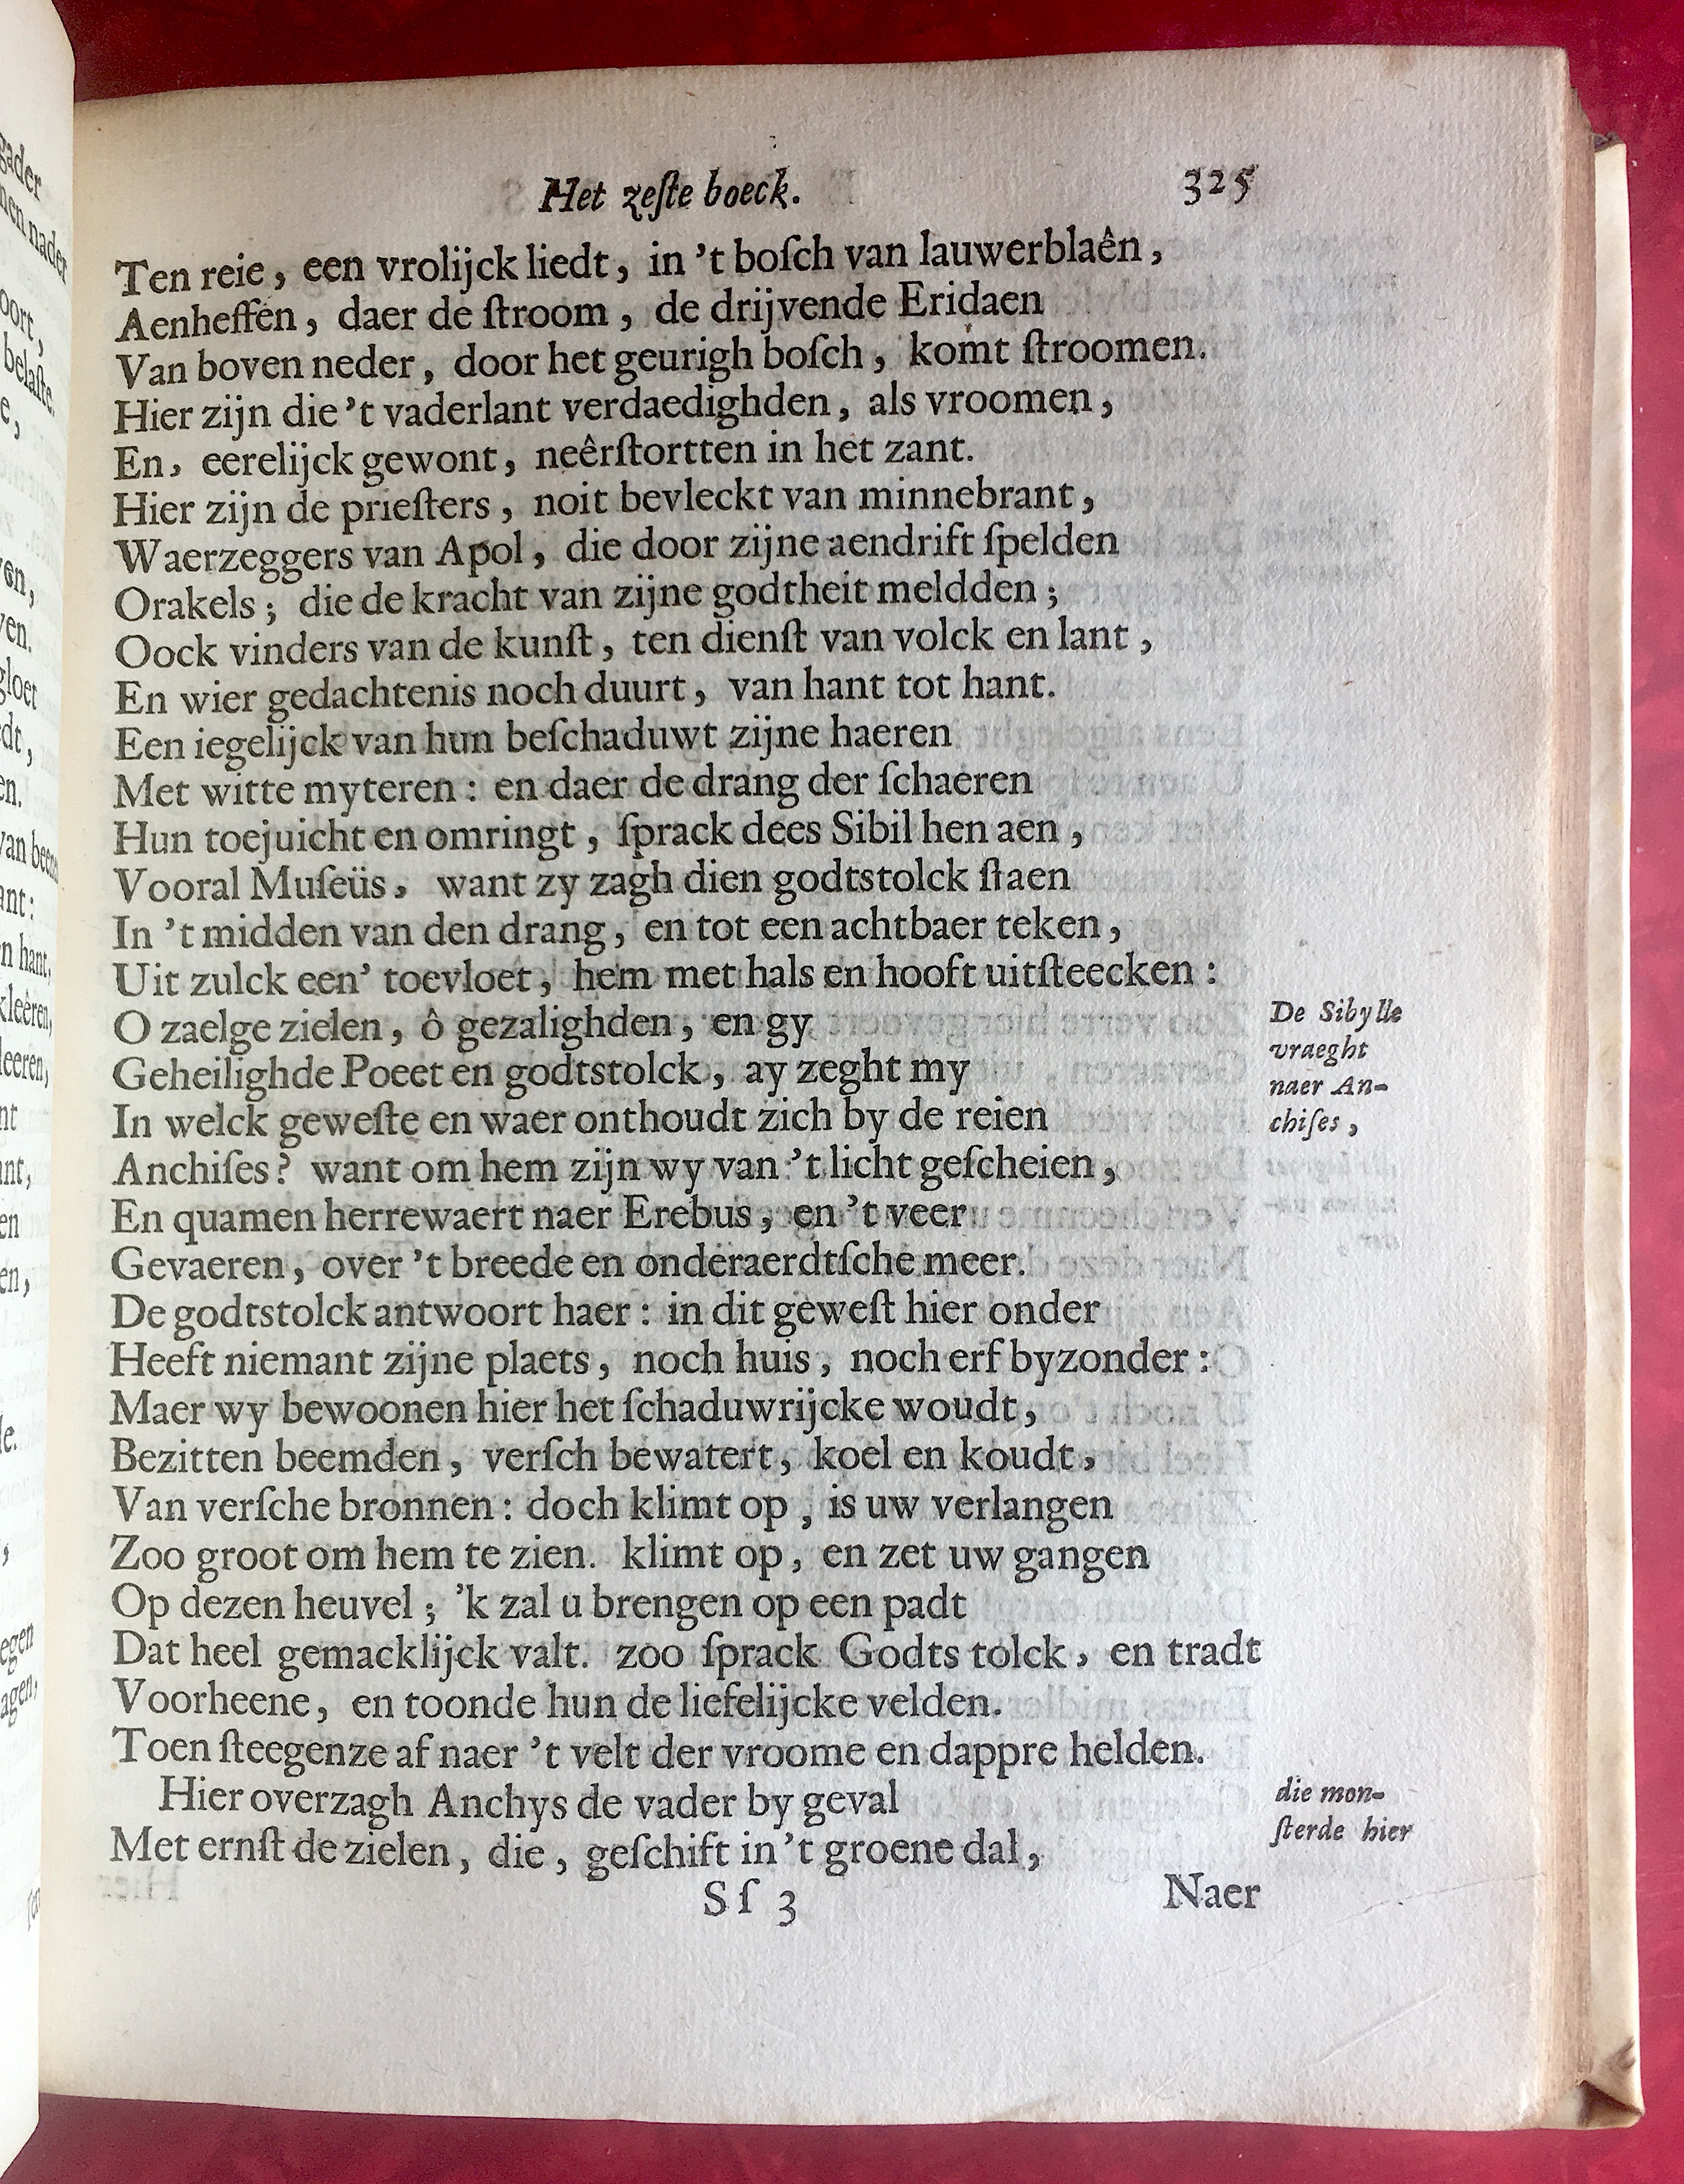 Het zeſte boeck.
325
Ten reie, een vrolijck liedt, in 't boſch van lauwerblaên,
Aenheffen, daer de ſtroom, de drijvende Eridaen
Van boven neder, door het geurigh boſch, komt ſtroomen.
Hier zijn die 't vaderlant verdaedighden, als vroomen,
En, eerelijck gewont, neêrſtortten in het zant.
Hier zijn de prieſters, noit bevleckt van minnebrant,
Waerzeggers van Apol, die door zijne aendrift ſpelden
Orakels; die de kracht van zijne godtheit meldden;
Oock vinders van de kunſt, ten dienſt van volck en lant,
En wier gedachtenis noch duurt, van hant tot hant.
Een iegelijck van hun beſchaduwt zijne haeren
Met witte myteren: en daer de drang der ſchaeren
Hun toejuicht en omringt, ſprack dees Sibil hen aen,
Vooral Muſeüs, want zy zagh dien godtstolck ſtaen
In 't midden van den drang, en tot een achtbaer teken,
Uit zulck een' toevloet, hem met hals en hooft uitſteecken:
O zaelge zielen, ô gezalighden, en gy
Geheilighde Poeet en godtstolck, ay zeght my
In welck geweſte en waer onthoudt zich by de reien
Anchiſes? want om hem zijn wy van 't licht geſcheien,
En quamen herrewaert naer Erebus, en 't veer
Gevaeren, over 't breede en onderaerdtſche meer.
De godtstolck antwoort haer: in dit geweſt hier onder
Heeft niemant zijne plaets, noch huis, noch erf byzonder:
Maer wy bewoonen hier het ſchaduwrijcke woudt,
Bezitten beemden, verſch bewatert, koel en koudt,
Van verſche bronnen: doch klimt op, is uw verlangen
Zoo groot om hem te zien. klimt op, en zet uw gangen
Op dezen heuvel; 'k zal u brengen op een padt
Dat heel gemacklijck valt. zoo ſprack Godts tolck, en tradt
Voorheene, en toonde hun de liefelijcke velden.
Toen ſteegenze af naer 't velt der vroome en dappre helden.
Hier overzagh Anchys de vader by geval
Met ernſt de zielen, die, geſchift in 't groene dal,
Sſ 3
Naer
De Sibylle
vraeght
naer An-
chiſes,
die mon-
ſterde hier